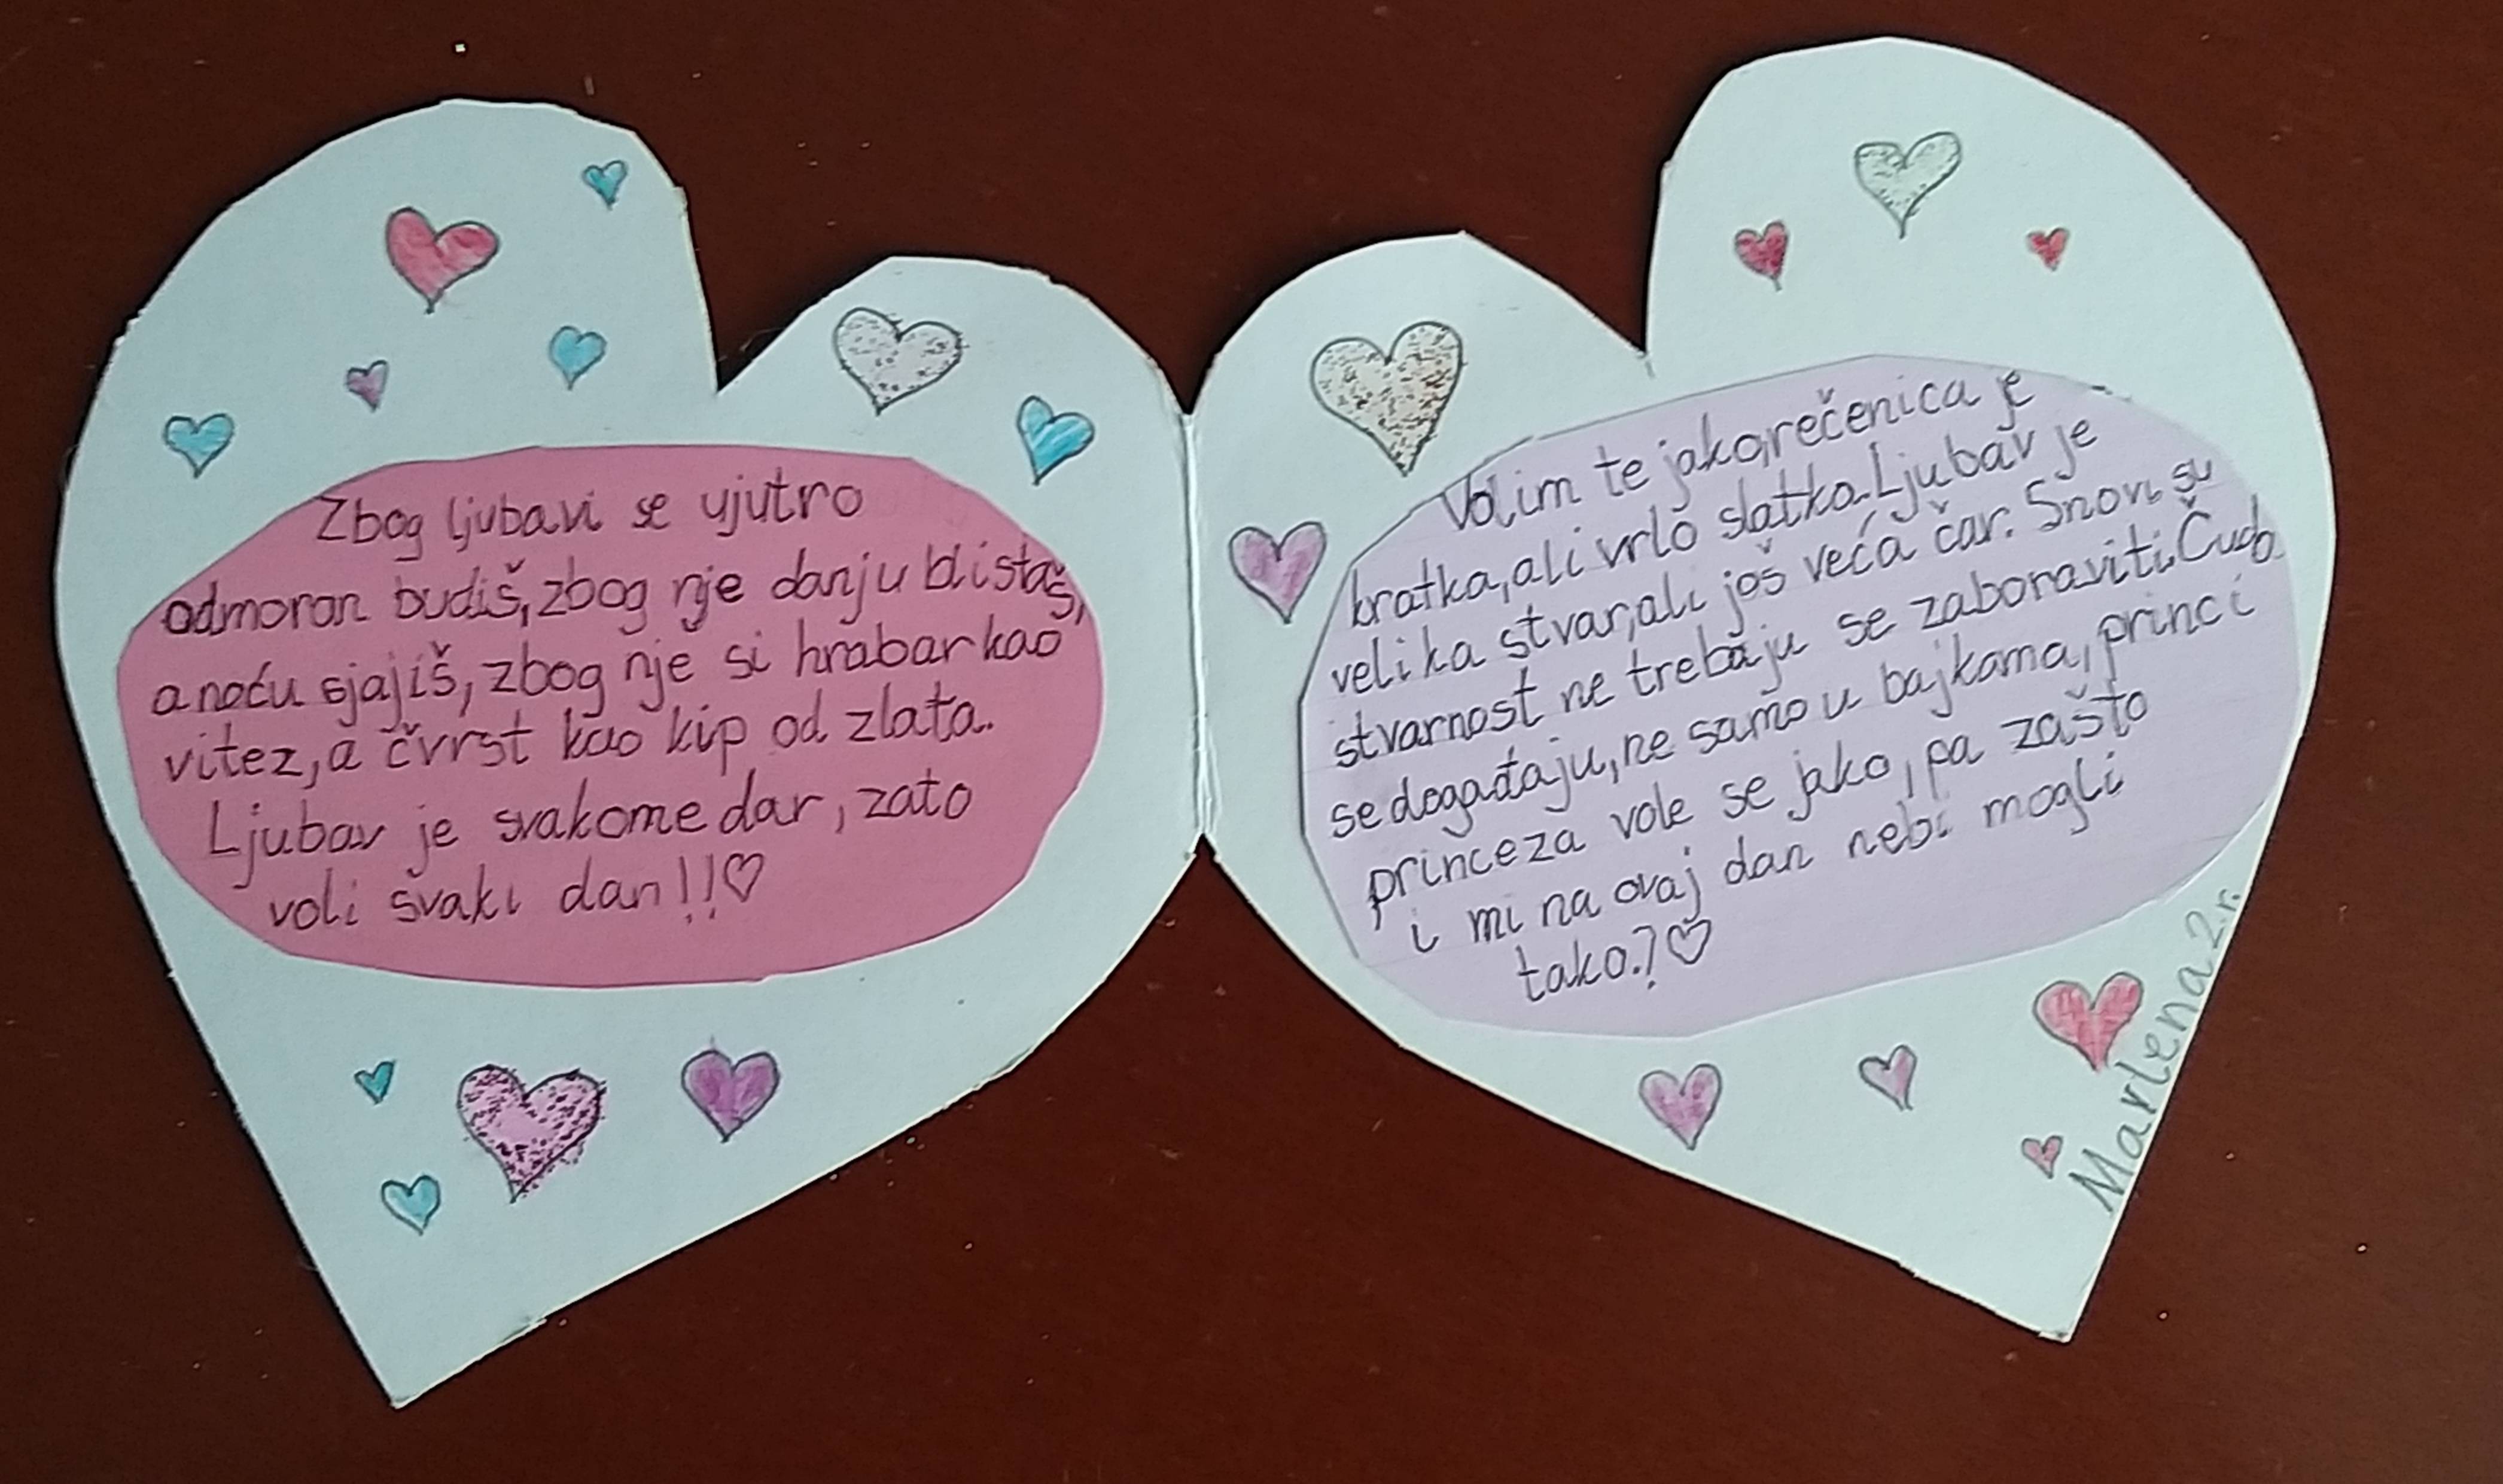 Zbog ljubavi se ujutro
odmoran budiš, zbog nje danju blistaš,
a noću sjajiš, zbog nje si hrabar kao
vitez, a čvrst kao kip od zlata.
Ljubav je svakome dar, zato
voli svaki dan!!♡
Volim te jako, rečenica je
kratka, ali vrlo slatka. Ljubav je
velika stvar, ali još veća čar. Snovi su
stvarnost ne trebaju se zaboraviti. Čuda
se događaju, ne samo u bajkama, princ i
princeza vole se jako, pa zašto
i mi na ovaj dan nebi mogli
tako.?♡
Marlena 2.r.